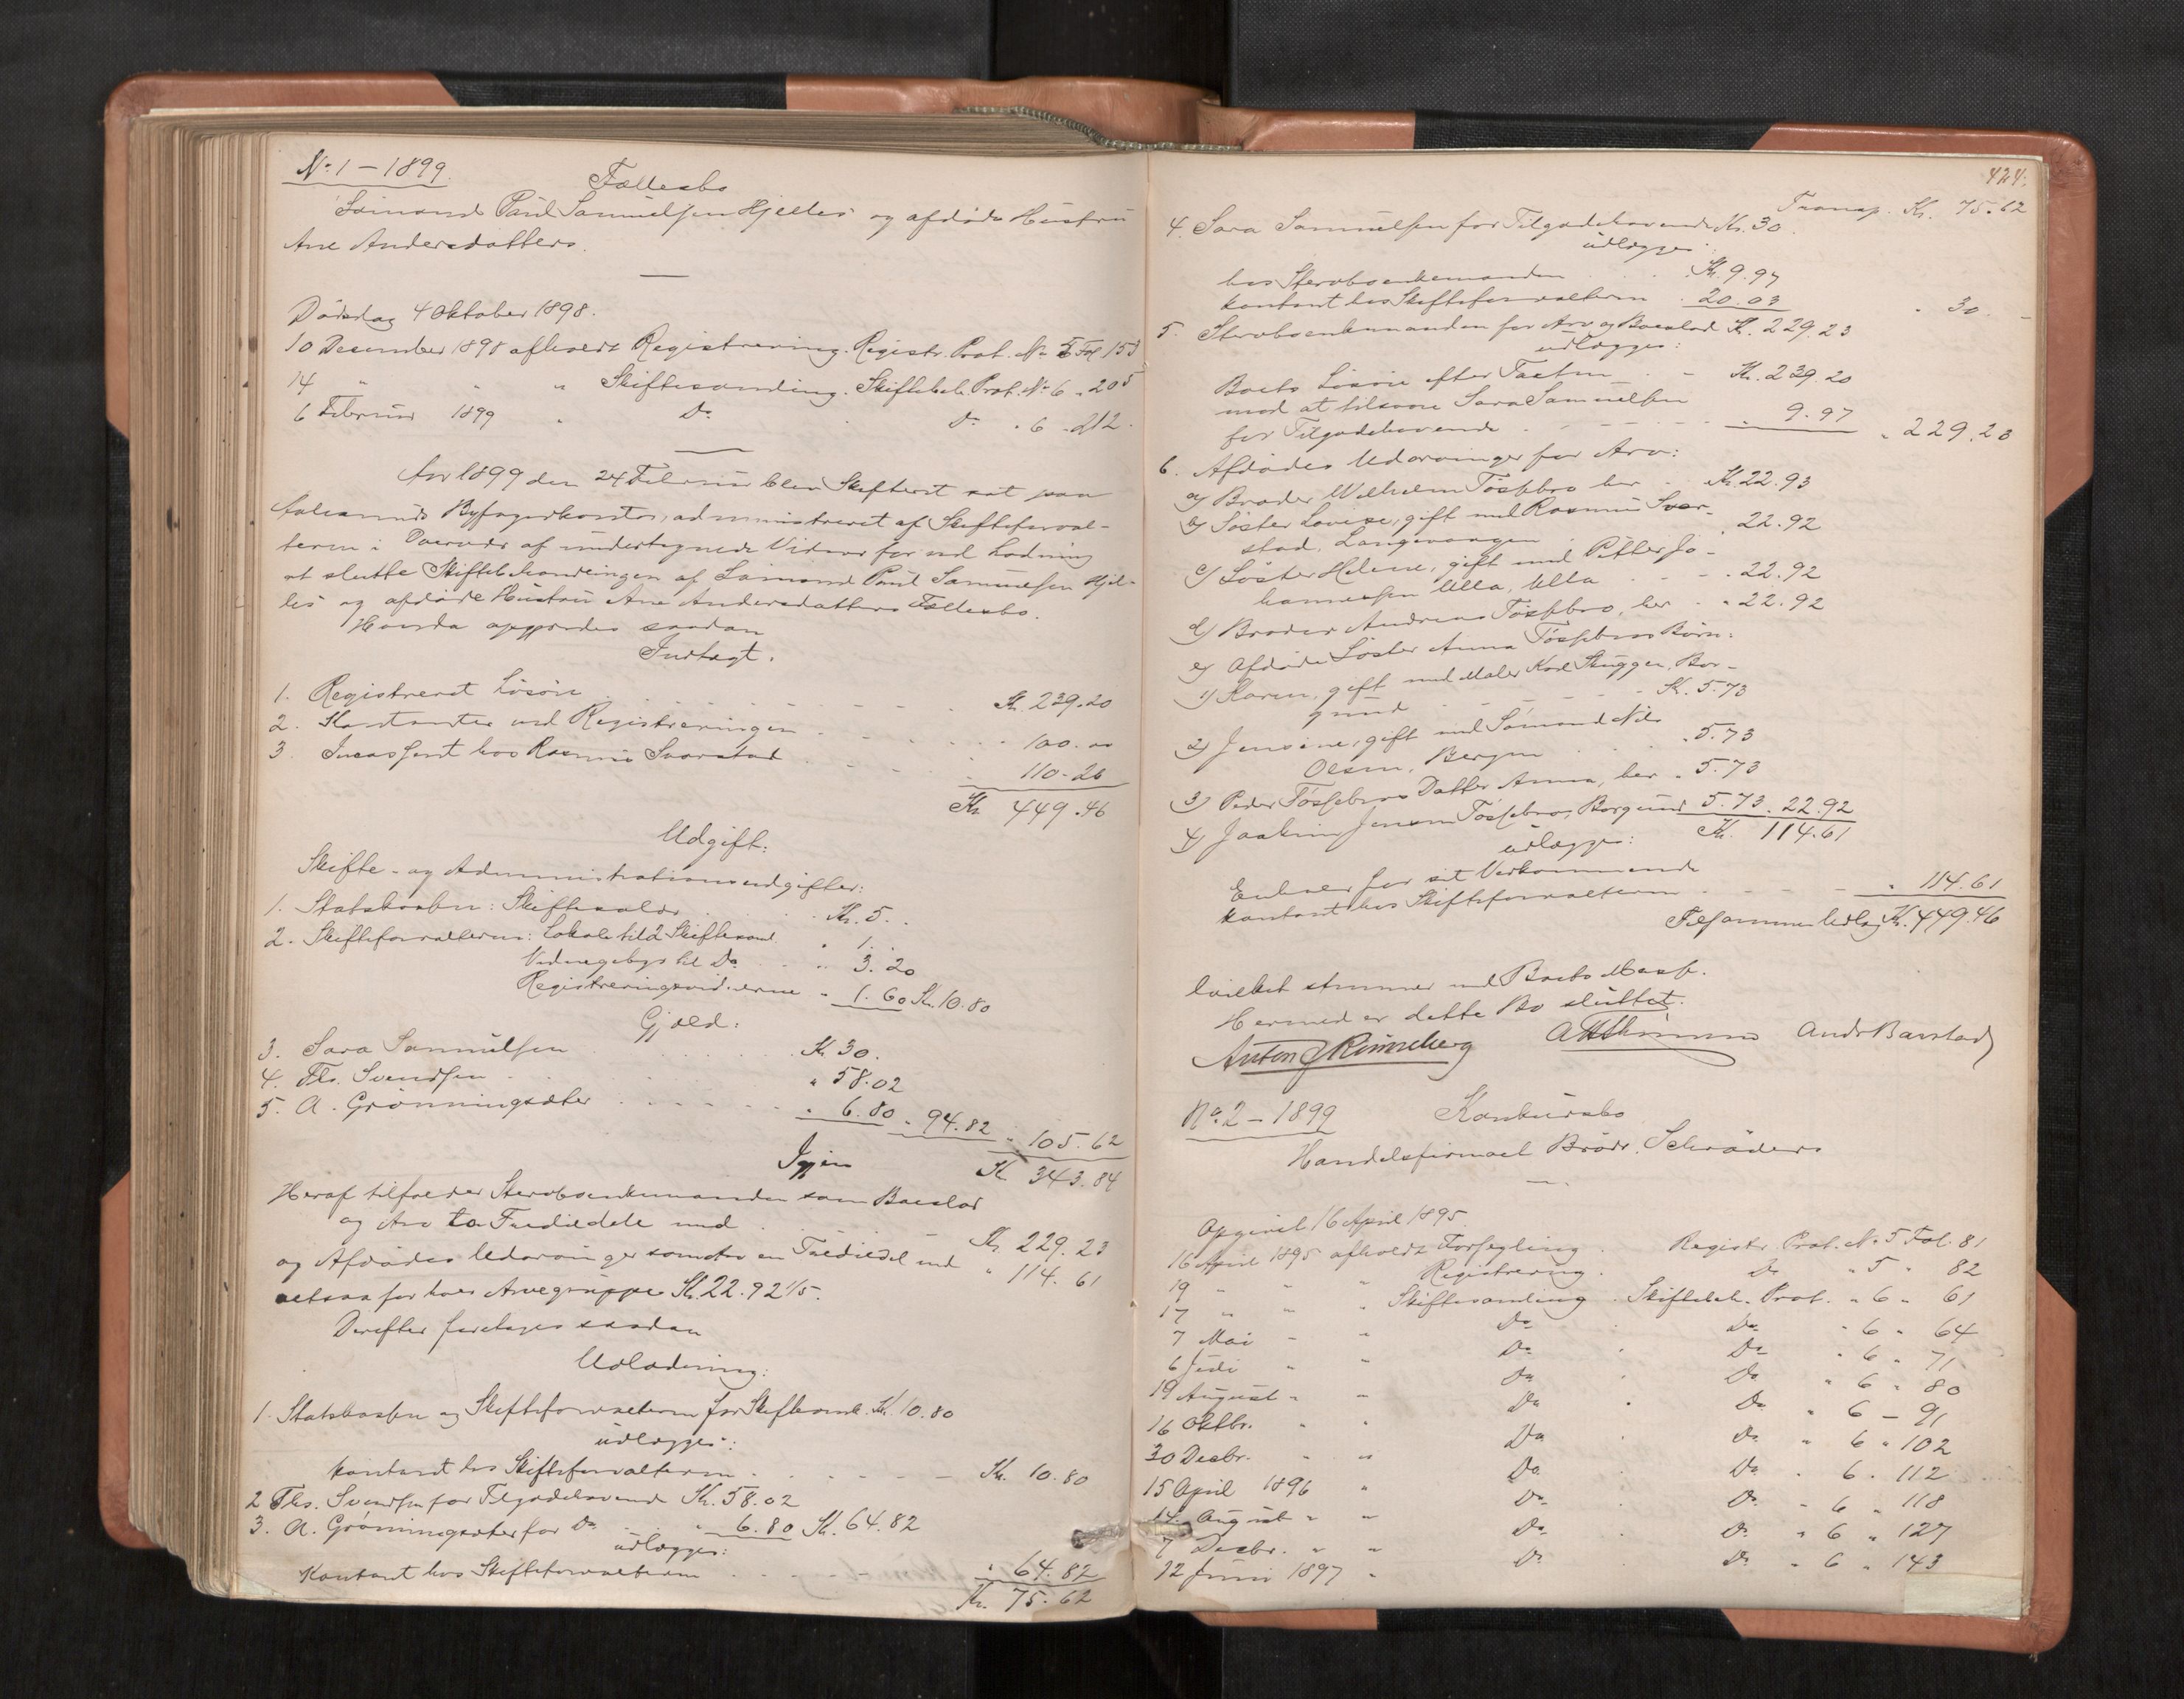 No 1 - 1899.
Fællesbo
Sömand Paul Samuelsen Hjelles og afdöde Hustru
Ane Andersdatters.
Dödsdag 4 Oktober 1898.
10 December 1898 afholdt Registrering. Registr. Prot. No 5 Fol 155
14 " " " Skiftesamling. Skiftebeh. Prot. No 6 " 205
6 Februar 1899 " Do Do " 6 " 212.
Aar 1899 den 24 Februar blev Skifteret sat paa
Aalesunds Byfogedkontor, administreret af Skifteforval-
teren i Overvær af undertegnede Vidner for ved Lodning
at slutte Skiftebehandlingen af Sömand Paul Samuelsen Hjel-
les og afdöde Hustru Ane Andersdatters Fællesbo.
Hvorda opgjordes saadan
Indtægt.
1. Registreret Lösöre Kr. 239.20
2. Kontanter ved Registreringen 100.00
3 Incasseret hos Rasmus Svorstad 110.26
Kr 449.46
Udgift:
Skifte- og Administrationsudgifter:
1. Statskassen: Skiftesalær Kr. 5.
2. Skifteforvalteren: Lokale til 2 Skiftesaml. " 1.
Vidnegebyr til Do " 3.20
Registreringsvidnerne " 1.60 Kr. 10.80
Gjæld:
3. Sara Samuelsen Kr 30.
4. Ths. Svendsen " 58.02
5. A. Grönningsæter " 6.80 " 94.82 " 105.62
Igjen Kr 343.84
Heraf tilfalder Stervboenkemanden som Boeslod
og Arv to Trediedele med Kr. 229.23
og Afdödes Udarvinger en Trediedel med " 114.61
altsaa for hver Arvegruppe Kr. 22.92 1/5.
Derefter foretages saadan
Udlodning:
1. Statskassen og Skifteforvalteren for Skifteomk. Kr. 10.80
udlægges:
kontant hos Skifteforvalteren Kr. 10.80
2 Ths. Svendsen for Tilgodehavende Kr. 58.02
3. A. Grönningsæter for Do " 6.80 Kr. 64.82
udlægges:
Kontant hos Skifteforvalteren " 64.82
Kr. 75.62
424.
Transp. Kr. 75.62
4. Sara Samuelsen for Tilgodehavende Kr. 30.
udlægges:
hos Stervboenkemanden Kr. 9.97
kontant hos Skifteforvalteren 20.03 " 30. -
5. Stervboenkemanden for Arv og Boeslod Kr. 229.23
udlægges:
Boets Lösöre efter Taxten Kr. 239.20
mod at tilsvare Sara Samuelsen
for Tilgodehavende " 9.97 " 229.23
6. Afdödes Udarvinger for Arv:
a) Broder Wilhelm Tössebro her Kr. 22.93
b) Söster Lovise, gift med Rasmus Svor-
stad, Langevaagen " 22.92
c) Söster Helene, gift med Petter Jo-
hannessen Ulla, Ulla " 22.92
d) Broder Andreas Tössebro, her " 22.92
e) Afdöde Söster Anna Tössebros Börn:
1) Karen, gift med Maler Karl Skuggen, Bor-
gund Kr. 5.73
2) Jensine, gift med Sömand Nils
Olsen, Bergen " 5.73
3) Peder Tössebros Datter Anna, her " 5.73
4) Joakim Jensen Tössebro, Borgund 5.73 " 22.92
udlægges: Kr. 114.61
Enhver for sit Vedkommende
kontant hos Skifteforvalteren " 114.61
Tilsammen Udlæg Kr. 449.46
hvilket stemmer med Boets Masse.
Hermed er dette Bo sluttet.
Anton J Rönneberg Andr Barstad
No 2 - 1899 Konkursbo
Handelsfirmaet Brödr. Schröders
Opgivet 16 April 1895
16 April 1895 afholdt Forsegling. Registr. Prot. No 5 Fol. 81
19 " " " Registrering. Do " 5 " 82
17 " " " Skiftesamling. Skiftebeh. Prot. " 6 " 61
7 Mai " " Do Do " 6 " 64
6 Juli " " Do Do " 6 " 71
19 August " " Do Do " 6 " 80
16 Oktbr. " " Do Do " 6 - 91
30 Decbr. " " Do Do " 6 " 102
15 April 1896 " Do Do " 6 " 112
14 August " " Do Do " 6 " 118
7 Decbr. " " Do Do " 6 " 127
12 Juni 1897 " Do Do " 6 " 143